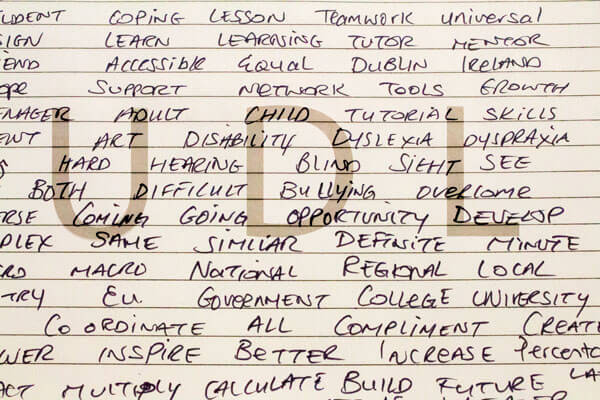 UDENT COPING LESSON TEAMWORK UNIVERSAL
SIGN LEARN LEARNSING TUTOR MENTOR
IEND ACCESSIBLE EQUAL DUBLIN IRELAND
OPE SUPPORT NETWORK TOOLS GROWTH
ENAGER ADULT CHILD TUTORIAL SKILLS
ENT ART DISABILITY DYSLEXIA DYSPRAXIA
HARD HEARING BLIND SIGHT SEE
BOTH DIFFICULT BULLYING OVERCOME
UDL
ERSE COMING GOING OPPORTUNITY DEVELOP
PLEX SAME SIMILIAR DEFINITE MINUTE
CRO MACRO NATIONAL REGIONAL LOCAL
TRY EU. GOVERNMENT COLLEGE UNIVERSITY
CO ORDINATE ALL COMPLIMENT CREATE
WER INSPIRE BETTER INCREASE Percenta
ACT MULTIPLY CALCULATE BUILD FUTURE LA